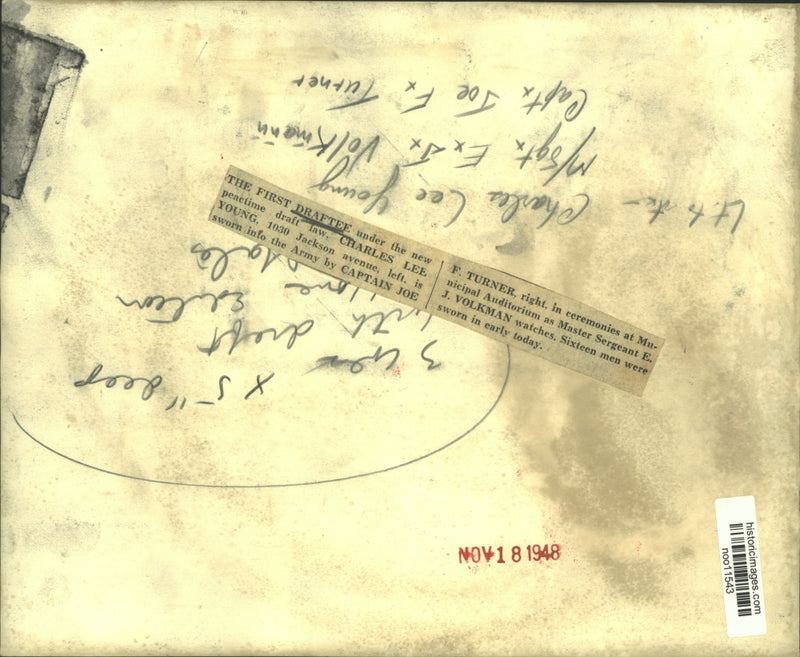 Lt. to rt. - Charles Lee Young
M/Sgt x E x J x Volkmann
Capt x Joe F x Turner
THE FIRST DRAFTEE under the new
peacetime draft law, CHARLES LEE
YOUNG, 1030 Jackson avenue, left, is
sworn into the Army by CAPTAIN JOE
F. TURNER, right, in ceremonies at Mu-
nicipal Auditorium as Master Sergeant E.
J. VOLKMAN watches. Sixteen men were
sworn in early today.
3
x 5" deep
with draft
Home Edition
NOV 18 1948
historicimages.com
noo11543